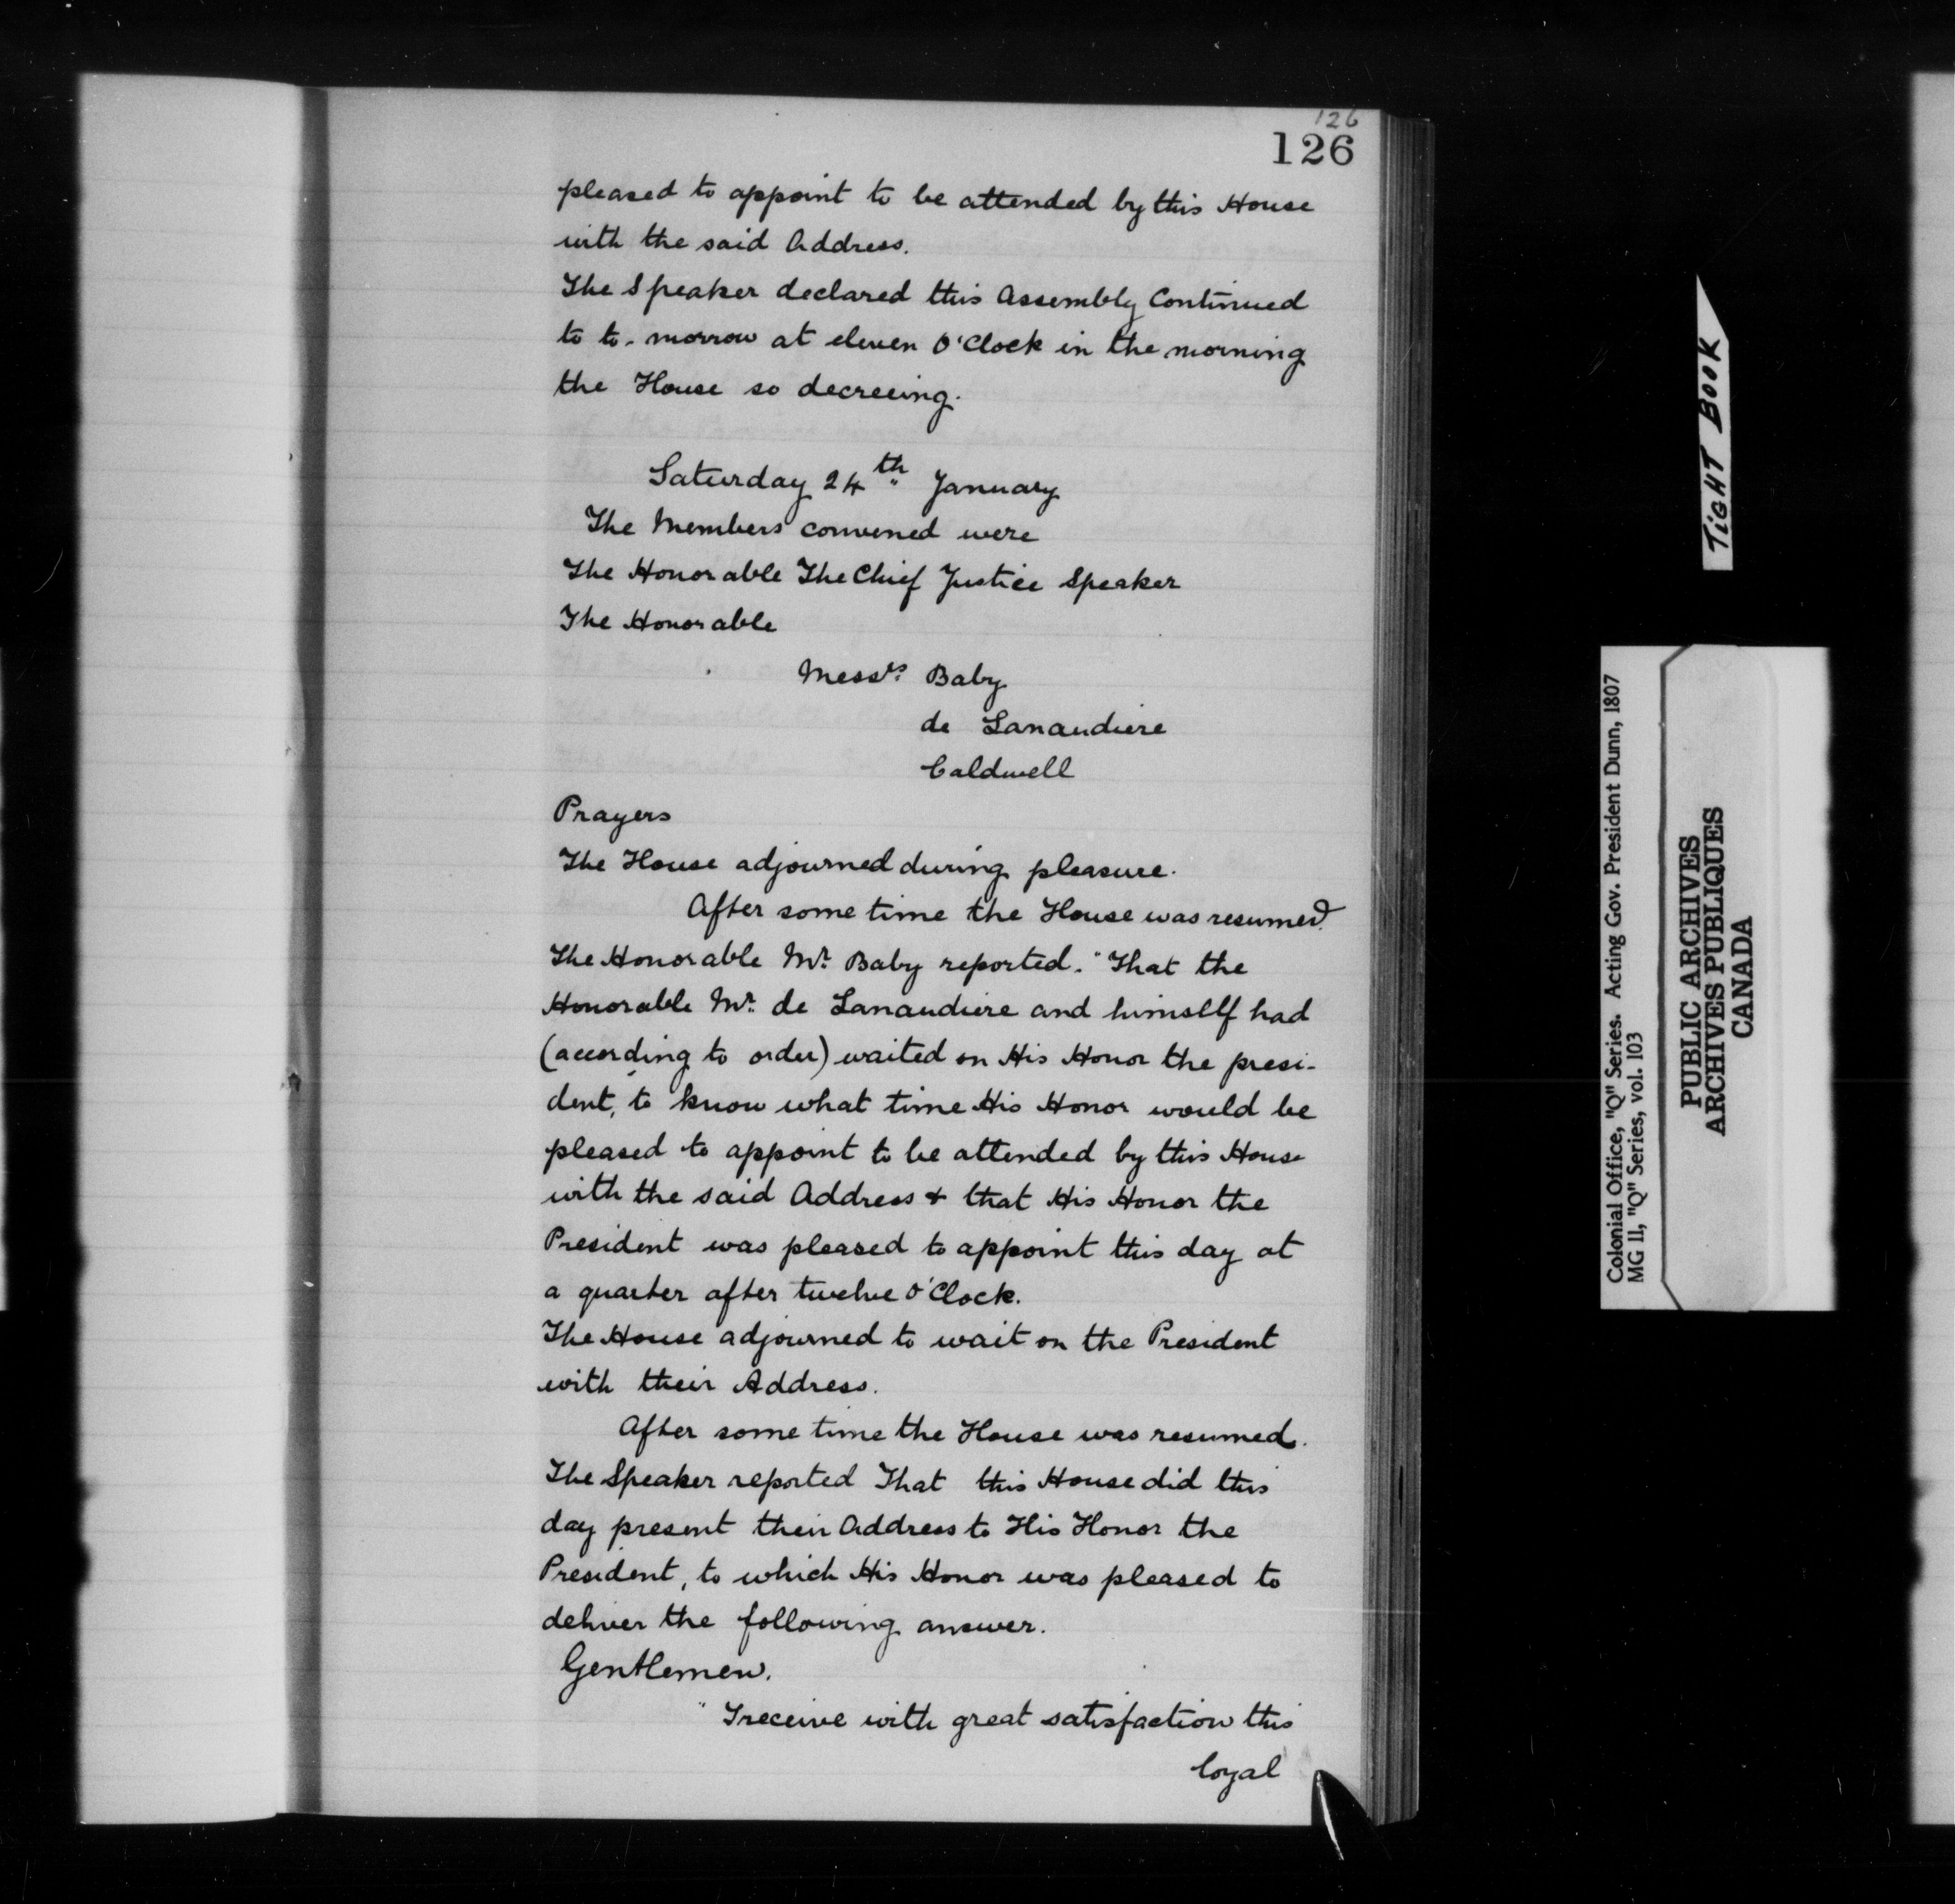 126
126
pleased to appoint to be attended by this House
with the said Address.
The Speaker declared this Assembly Continued
to to-morrow at eleven O'Clock in the morning
the House so decreeing.
Saturday 24th January
The Members convened were
The Honorable The Chief Justice Speaker
The Honorable
Messrs. Baby
de Lanaudiere
Caldwell
Prayers
The House adjourned during pleasure.
After some time the House was resumed.
The Honorable Mr. Baby reported. "That the
Honorable Mr. de Lanaudiere and himself had
(according to order) waited on His Honor the presi-
dent, to know what time His Honor would be
pleased to appoint to be attended by this House
with the said Address & that His Honor the
President was pleased to appoint this day at
a quarter after twelve O'Clock.
The House adjourned to wait on the President
with their Address.
After some time the House was resumed.
The Speaker reported That this House did this
day present their Address to His Honor the
President, to which His Honor was pleased to
deliver the following answer.
Gentlemen.
"I receive with great satisfaction this
loyal
TiGHT BOOK
Colonial Office, "Q" Series. Acting Gov. President Dunn, 1807
MG 11, "Q" Series, vol. 103
PUBLIC ARCHIVES
ARCHIVES PUBLIQUES
CANADA